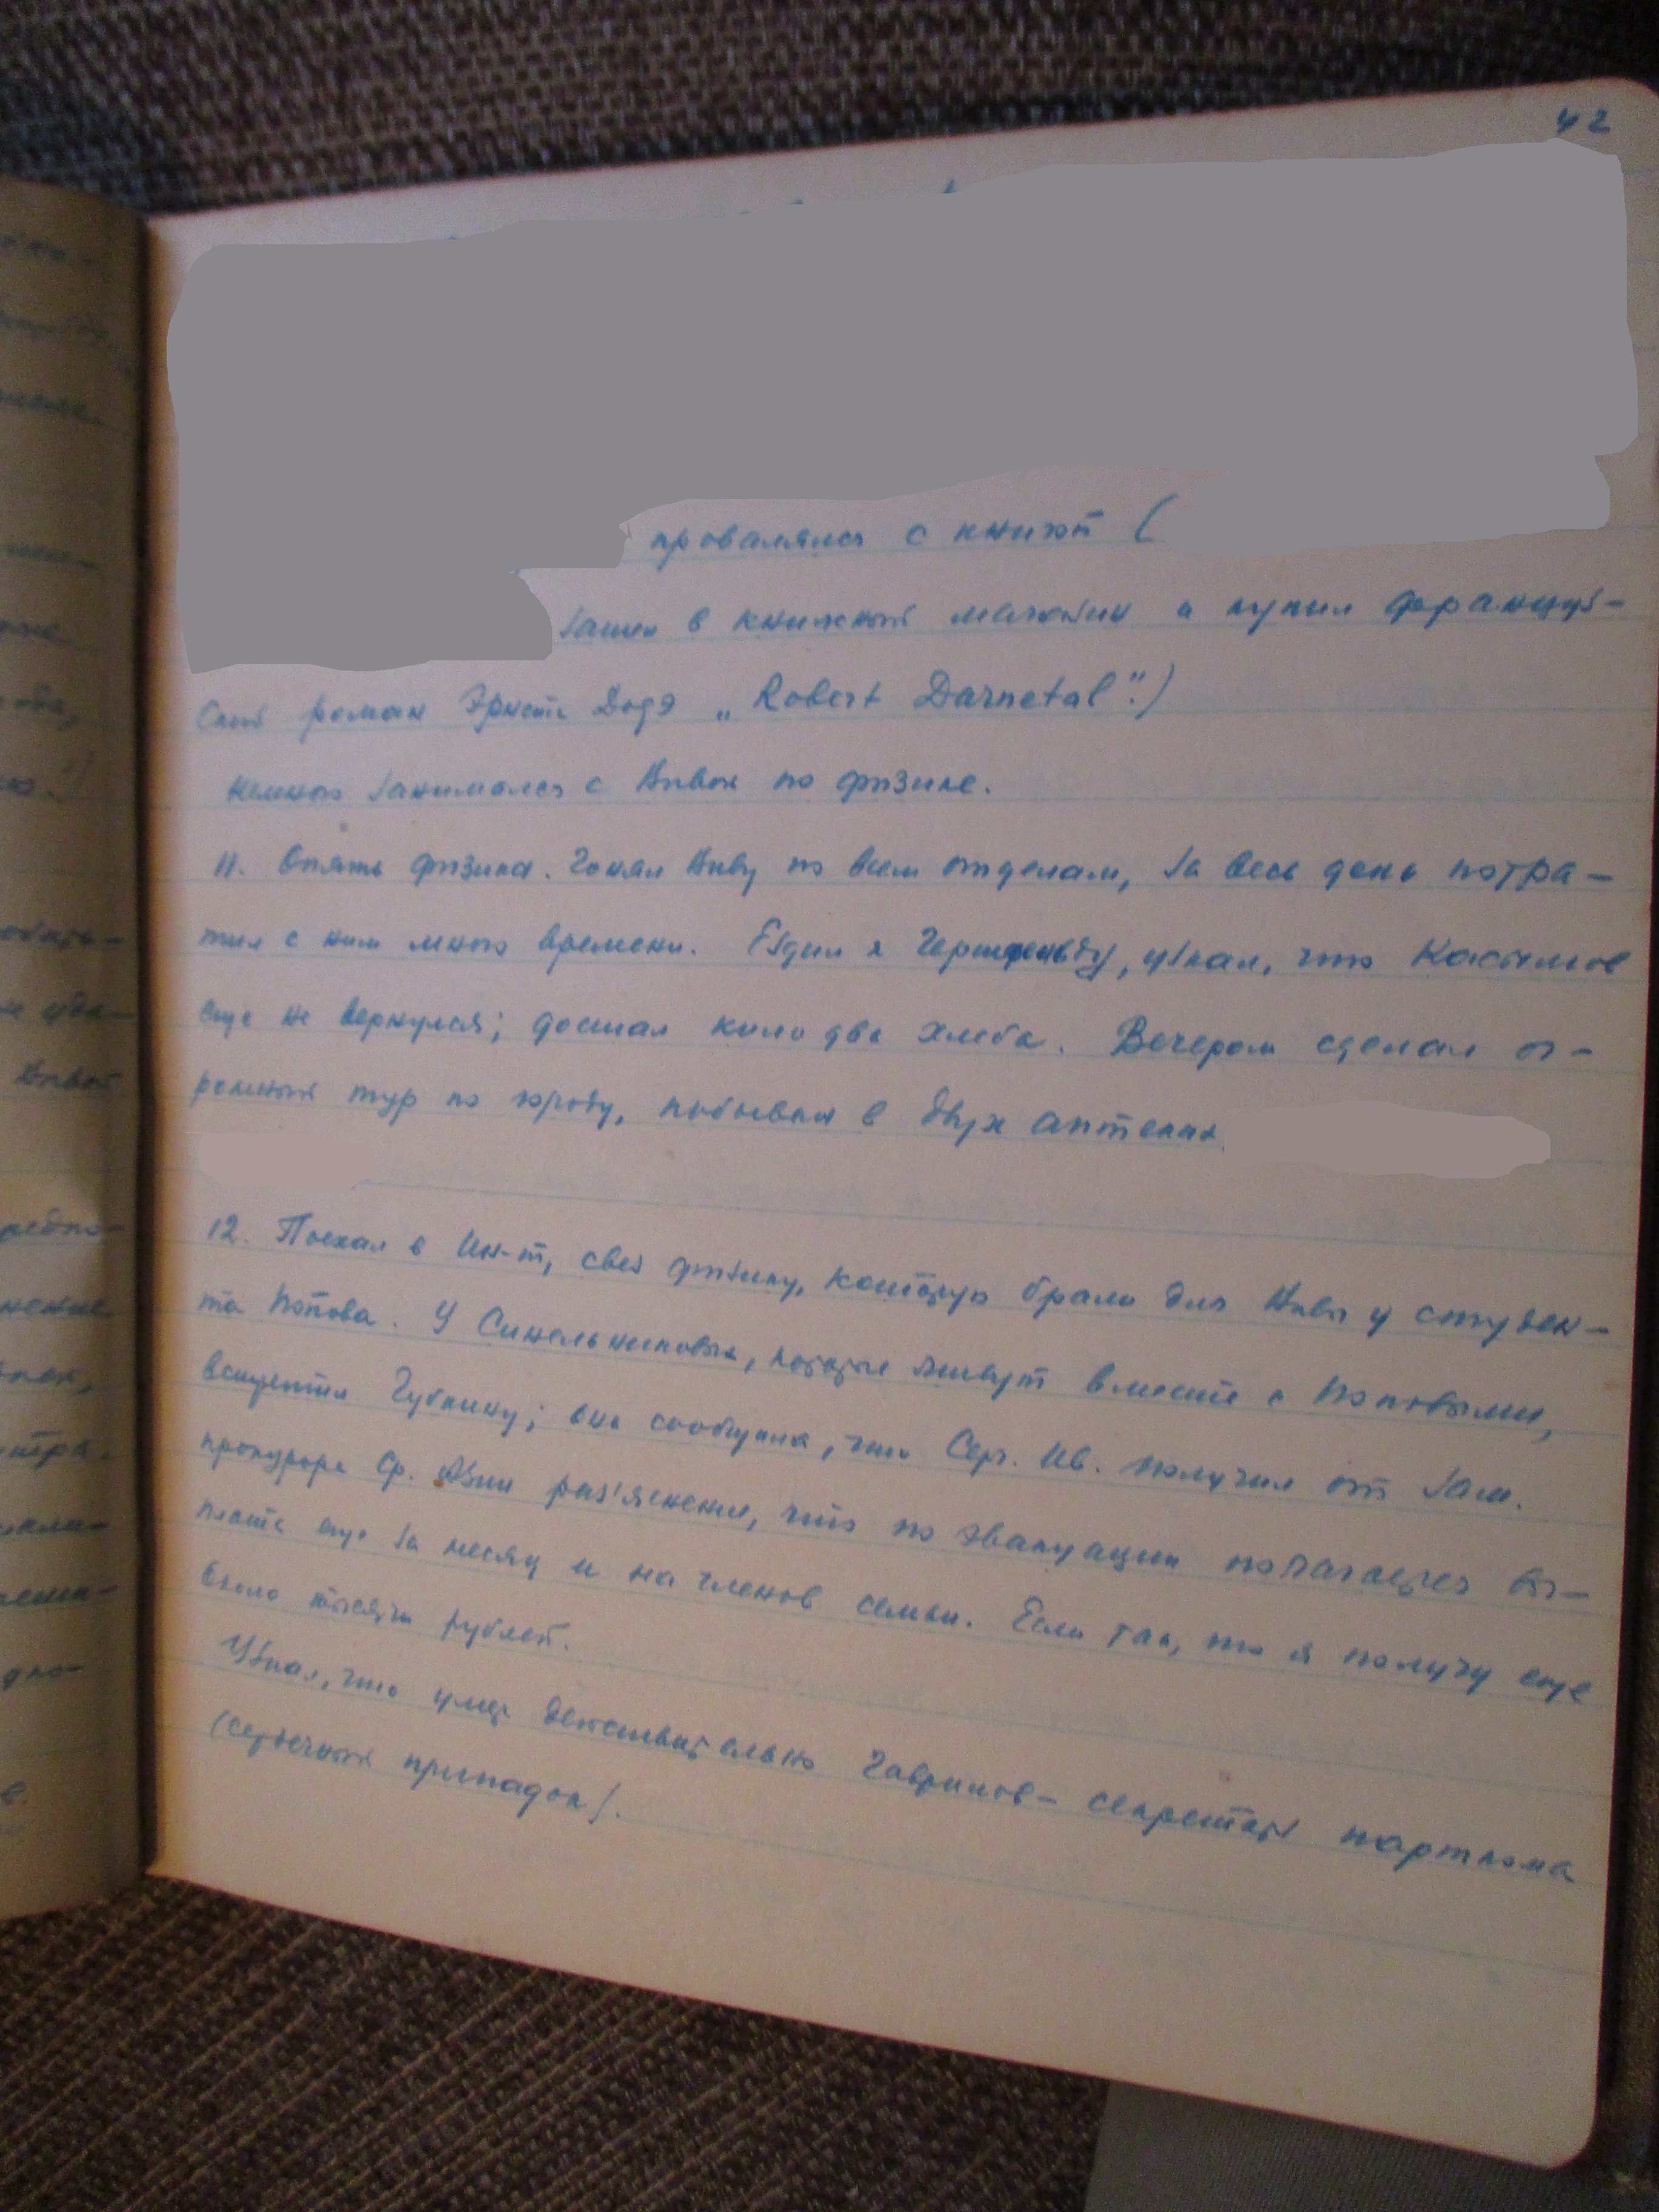 42
провалялся с книгой (
зашел в книжный магазин и купил француз-
ский роман Эрнеста Додэ „Robert Darnetal".)
Немного занимался с Вивой по физике.
11. Опять физика. Гонял Виву по всем отделам, за весь день потра-
тил с ним много времени. Ездил к Герценбергу, узнал, что Касимов
еще не вернулся; достал кило два хлеба. Вечером сделал ог-
ромный тур по городу, побывал в двух аптеках
12. Поехал в Ин-т, свез физику, которую брали для Вивы у студен-
та Попова. У Синельниковых, которые живут вместе с Поповыми,
встретил Губкину; она сообщила, что Серг. Ив. получил от зам.
прокурора Ср. Азии раз'яснение, что по эвакуации полагается вы-
плата еще за месяц и на членов семьи. Если так, то я получу еще
около тысячи рублей.
Узнал, что умер действительно Гаврилов – секретарь парткома
(сердечный припадок).